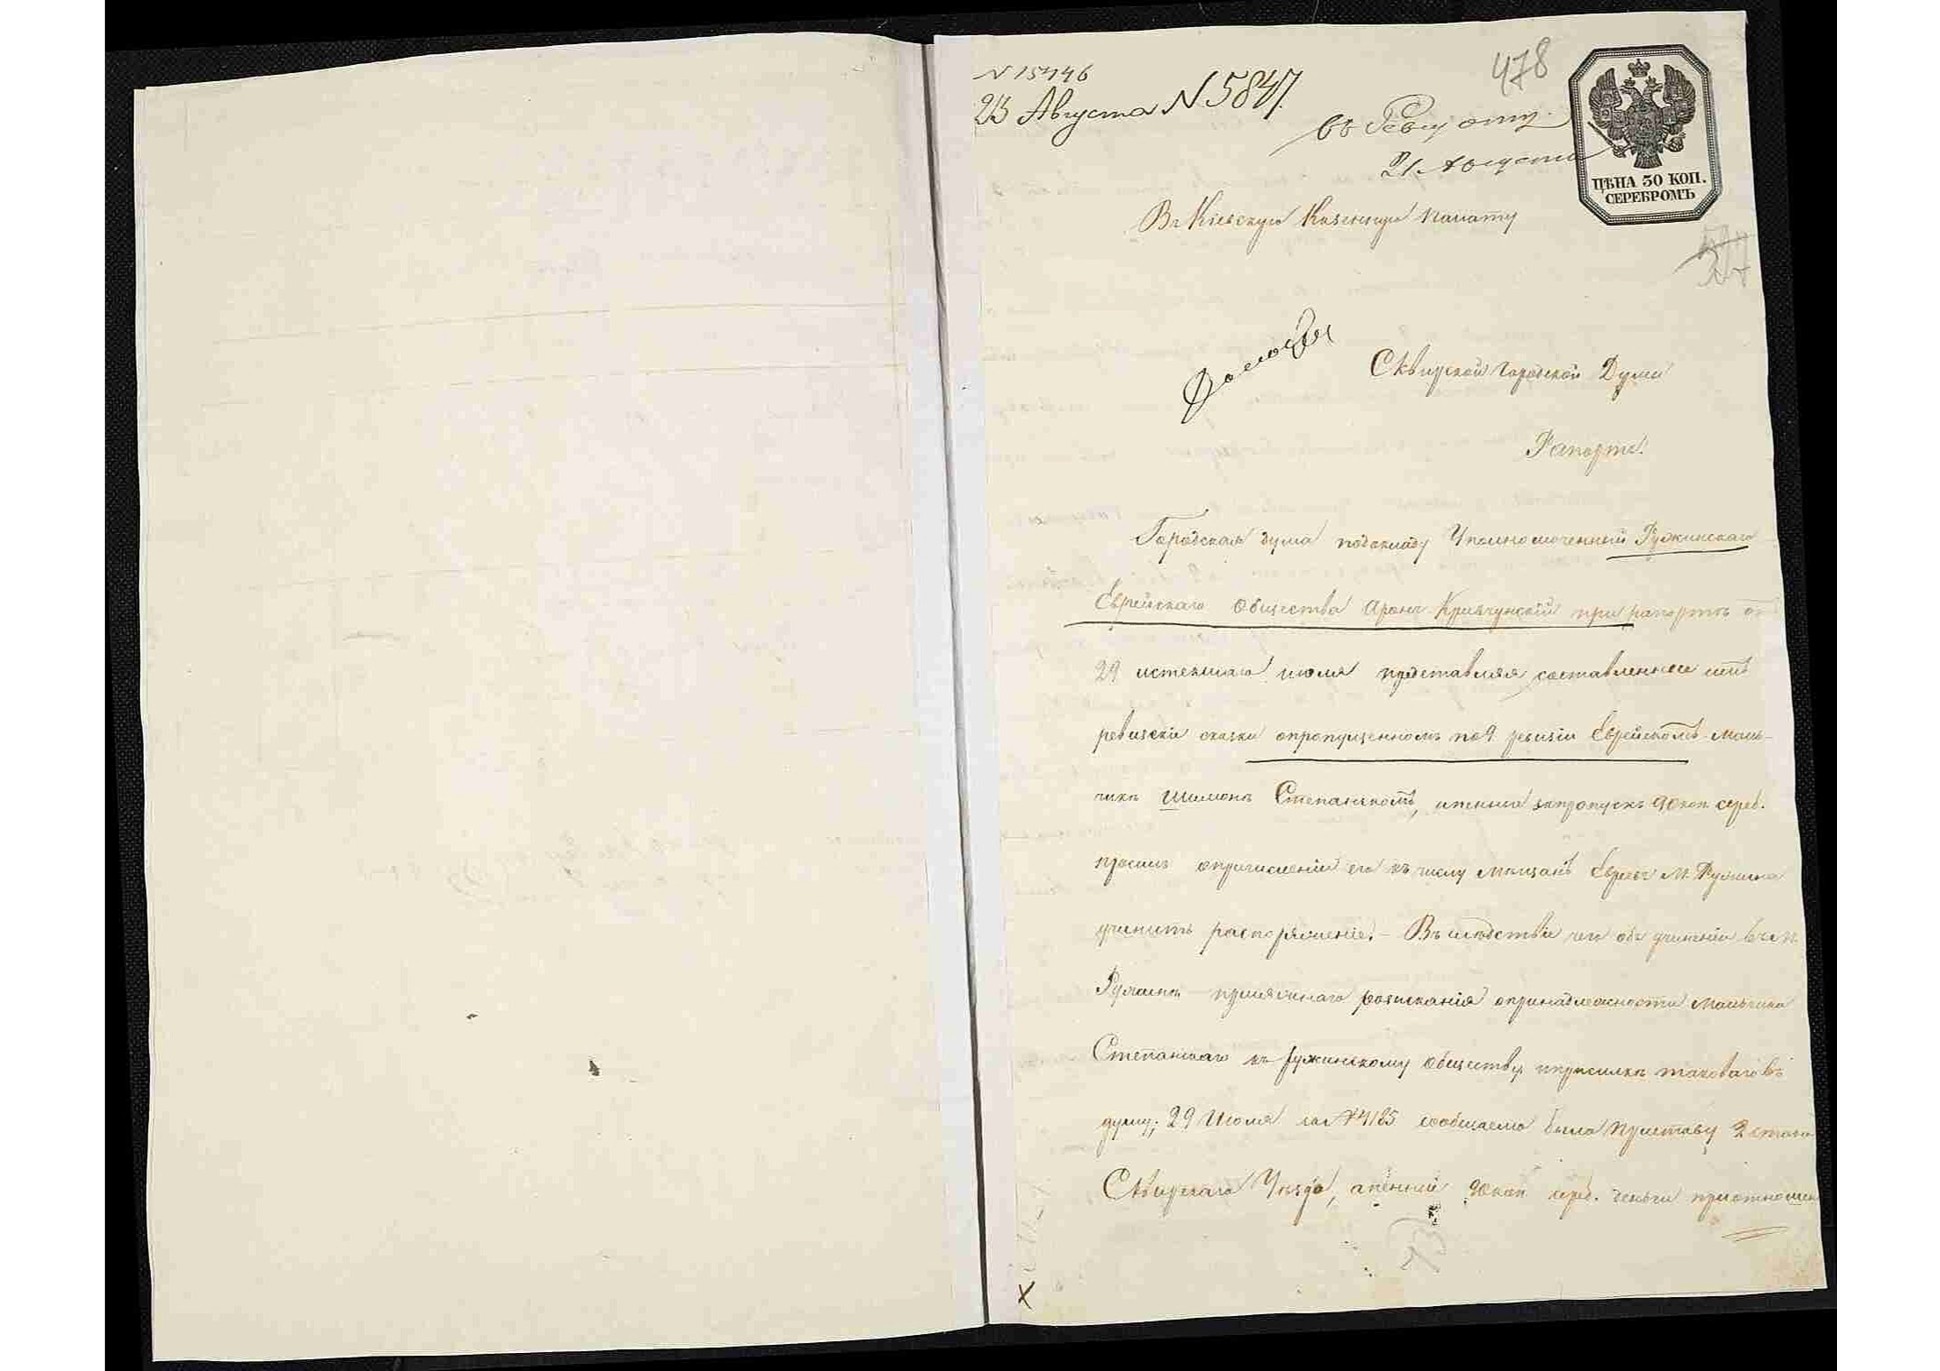 N 15446
478
23 Августа N 5847.
въ Ревиз. отд.
21 Августа
ЦѢНА 30 КОП.
СЕРЕБРОМЪ
Въ Кіевскую Казенную Палату
Сквирской Городской Думы
Рапортъ.
Городская дума подокладу Уполномоченный Ружинскаго
Еврейскаго Общества Аронъ Кривчунскій при рапортѣ от
29 истекшаго июля представляя составленные имъ
ревизскія сказки опропущенномъ по 9 ревизіи Еврейскомъ маль-
чикѣ Шимонѣ Степанскомъ, ипенни запропускъ 90 коп сереб.
просилъ опричисленіи его къ числу мѣщанъ Евреевъ М. Ружина
учинить распоряженіе. – Въ слѣдствіе чего объ учиненіи въ м.
Ружинѣ розисканія опринадлежности мальчика
Степанскаго къ ружинскому обществу иприсилкѣ таковаго въ
думу; 29 Июля за N 4125 сообщаемо было Приставу 2 стана
Сквирскаго Уѣзда, апенніи 90 коп сереб. деньги приотношен